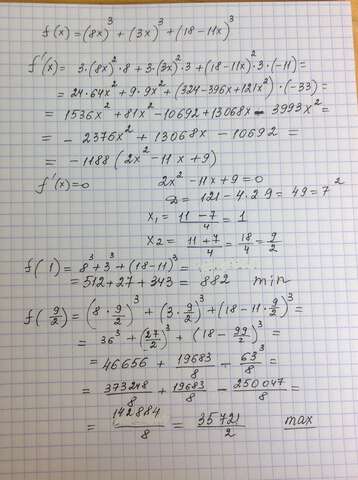 f(x) = (8x)³ + (3x)³ + (18 - 11x)³
f'(x) = 3·(8x)²·8 + 3·(3x)²·3 + (18 - 11x)²·3·(-11) =
= 24·64x² + 9·9x² + (324 - 396x + 121x²)·(-33) =
= 1536x² + 81x² - 10692 + 13068x - 3993x² =
= - 2376x² + 13068x - 10692 =
= -1188 (2x² - 11x + 9)
f'(x) = 0 2x² - 11x + 9 = 0
D = 121 - 4·2·9 = 49 = 7²
x₁ = (11 - 7)/4 = 1
x₂ = (11 + 7)/4 = 18/4 = 9/2
f(1) = 8³ + 3³ + (18 - 11)³ =
= 512 + 27 + 343 = 882 min
f(9/2) = (8·9/2)³ + (3·9/2)³ + (18 - 11·9/2)³ =
= 36³ + (27/2)³ + (18 - 99/2)³ =
= 46656 + 19683/8 - 63³/8 =
= 373248/8 + 19683/8 - 250047/8 =
= 142884/8 = 35721/2 max